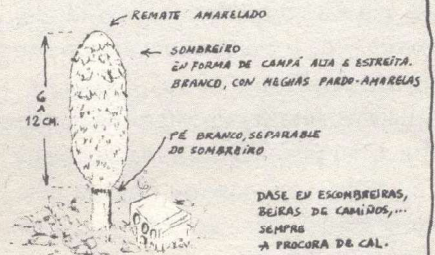 REMATE AMARELADO
SOMBREIRO
EN FORMA DE CAMPÁ ALTA E ESTREITA.
BRANCO, CON MECHAS PARDO-AMARELAS
6
A
12 CM.
PÉ BRANCO, SEPARABLE
DO SOMBREIRO
DASE EN ESCOMBREIRAS,
BEIRAS DE CAMIÑOS,...
SEMPRE
A PROCURA DE CAL.